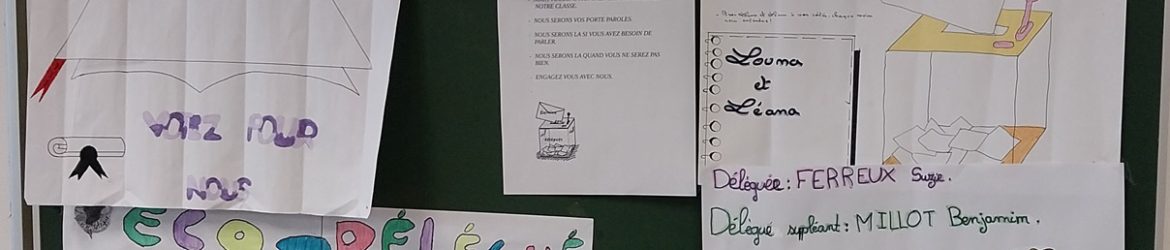 VOTEZ POUR
NOUS
NOTRE CLASSE.
- NOUS SERONS VOS PORTE PAROLES.
- NOUS SERONS LA SI VOUS AVEZ BESOIN DE
PARLER.
- NOUS SERONS LA QUAND VOUS NE SEREZ PAS
BIEN.
- ENGAGEZ VOUS AVEC NOUS.
Louna
et
Léana
Déléguée : FERREUX Suzie.
Délégué suppléant : MILLOT Benjamin.
ECO-DÉLÉGUÉ